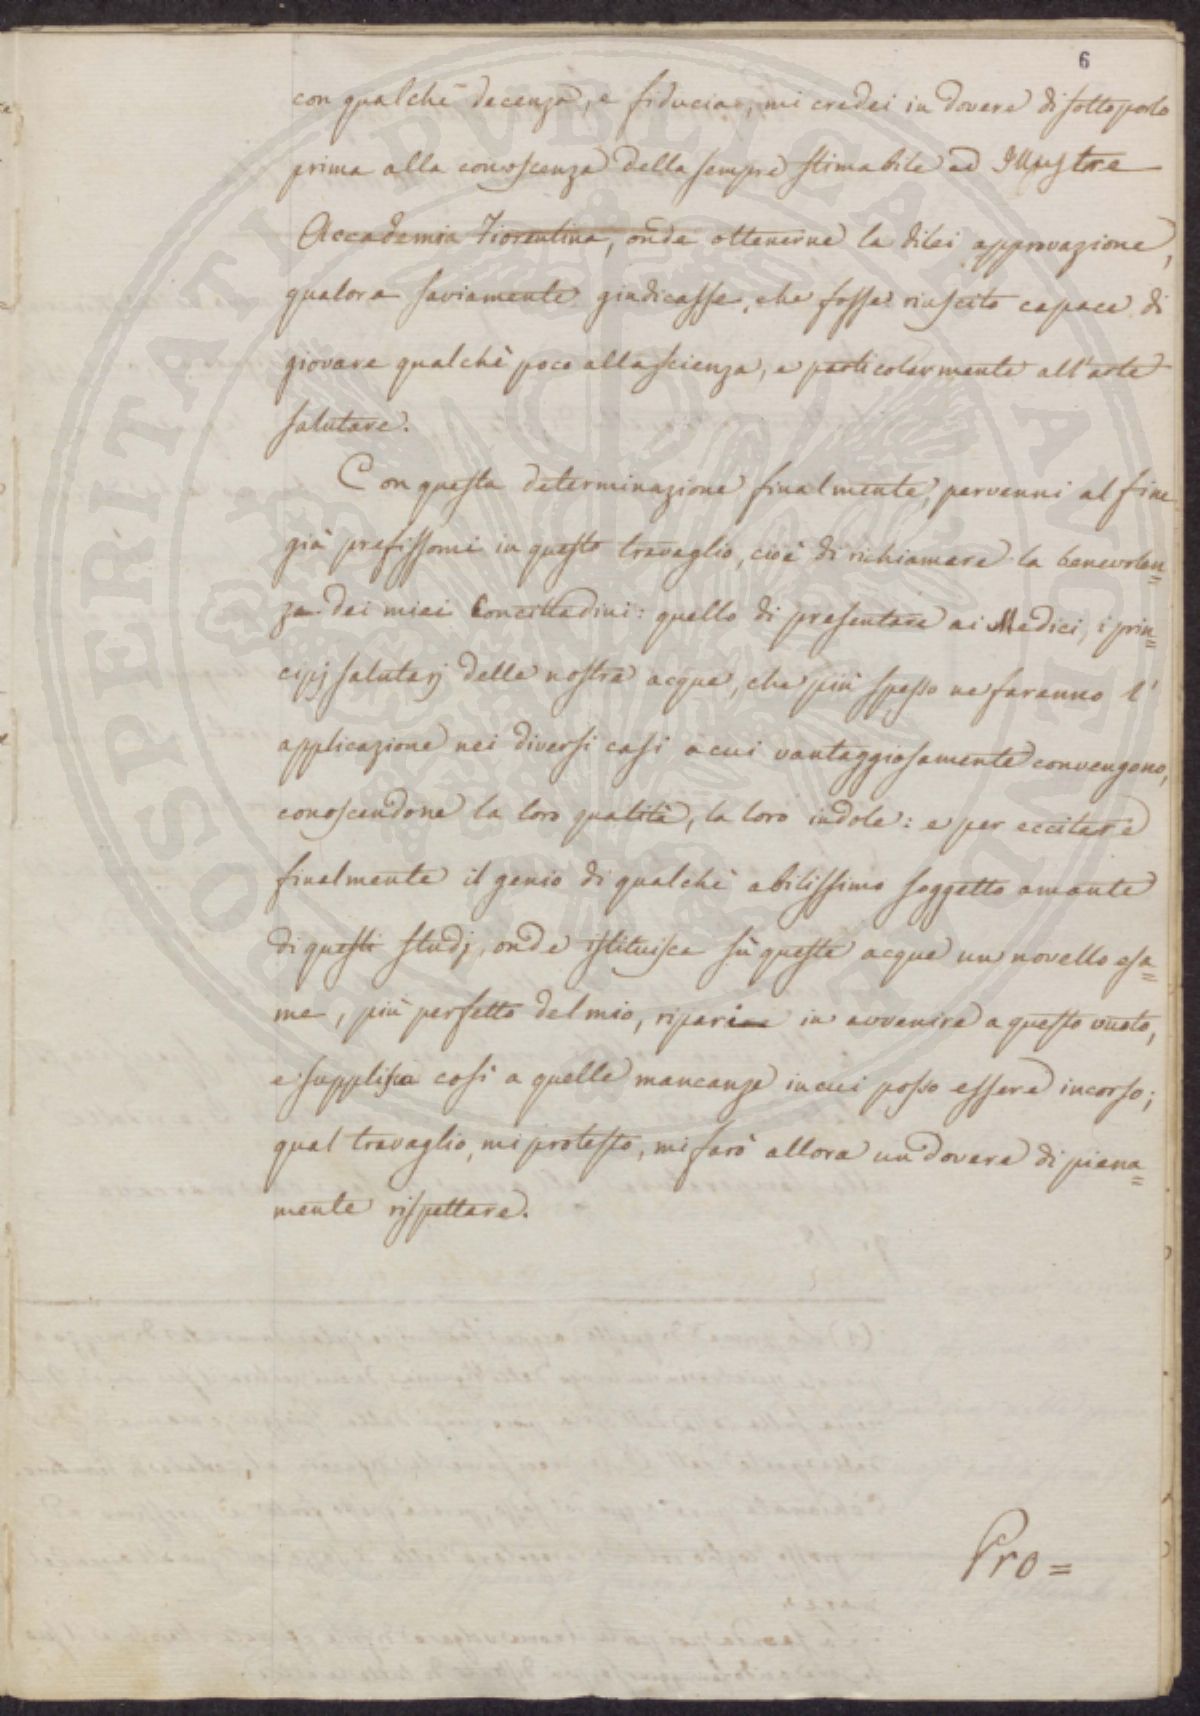 6
con qualchè decenza, e fiducia, mi credei in dovere di sottoporlo
prima alla conoscenza della sempre stimabile ed Illustre
Accademia Fiorentina, onde ottenerne la dilei approvazione,
qualora saviamente giudicasse, che fosse riuscito capace di
giovare qualchè poco alla scienza, e particolarmente all'arte
salutare.
Con questa determinazione finalmente, pervenni al fine
già prefissomi in questo travaglio, cioè di richiamare la benevolen=
za dei miei Concittadini: quello di presentare ai Medici, i prin=
cipj salutarj delle nostre acque, che più spesso ne faranno l'
applicazione nei diversi casi a cui vantaggiosamente convengono,
conoscendone la loro qualità, la loro indole: e per eccitare
finalmente il genio di qualchè abilissimo soggetto amante
di questi studj, onde istituisca sù queste acque un novello esa=
me, più perfetto del mio, ripari in avvenire a questo vuoto,
e supplisca così a quelle mancanze in cui posso essere incorso;
qual travaglio, mi protesto, mi farò allora un dovere di piena=
mente rispettare.
Pro=
PROSPERITATI PUBLICAE AUGENDAE